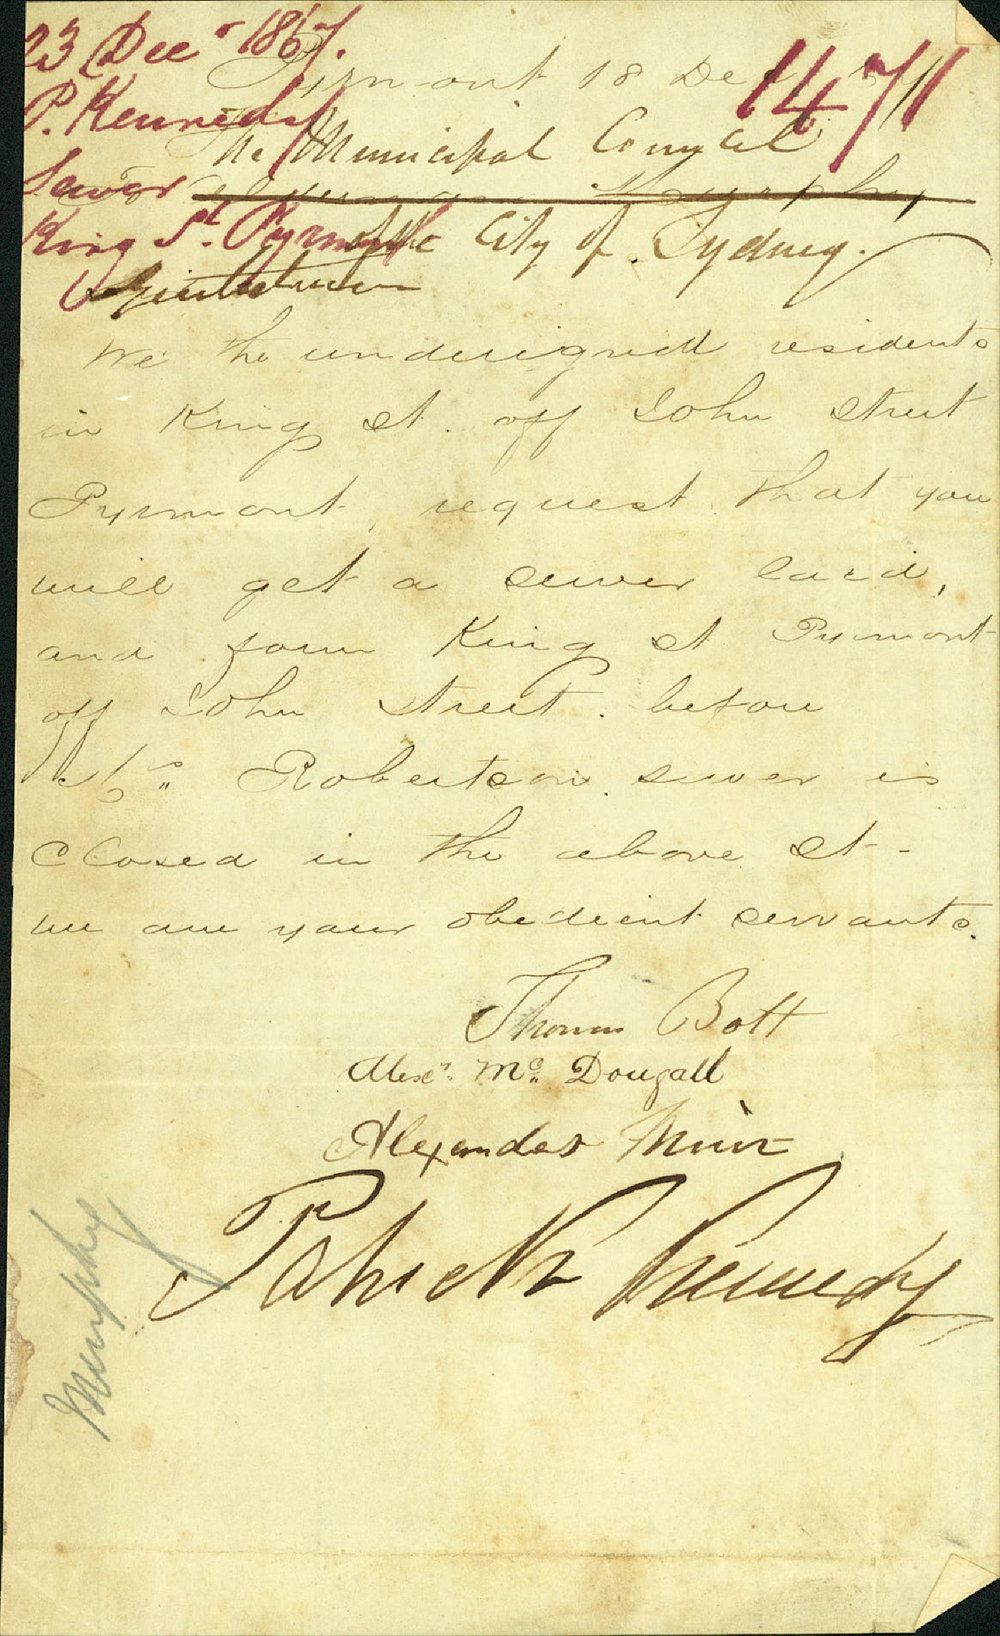 23 Decr 1867.
P. Kennedy
Sewer
King St. Pyrmont
1471
Pyrmont 18 Dec
The Municipal Council
Murphy
of the City of Sydney.
Gentlemen
We the undersigned residents
in King St. off John Street
Pyrmont, request that you
will get a sewer laid,
and form King St Pyrmont
off John Street. before
Robertson sewer is
closed in the above St-
we are your obedient servants.
Thomas Bott
Alexr. Mc. Dougall
Alexander Muir
Patrick Kennedy
Murphy